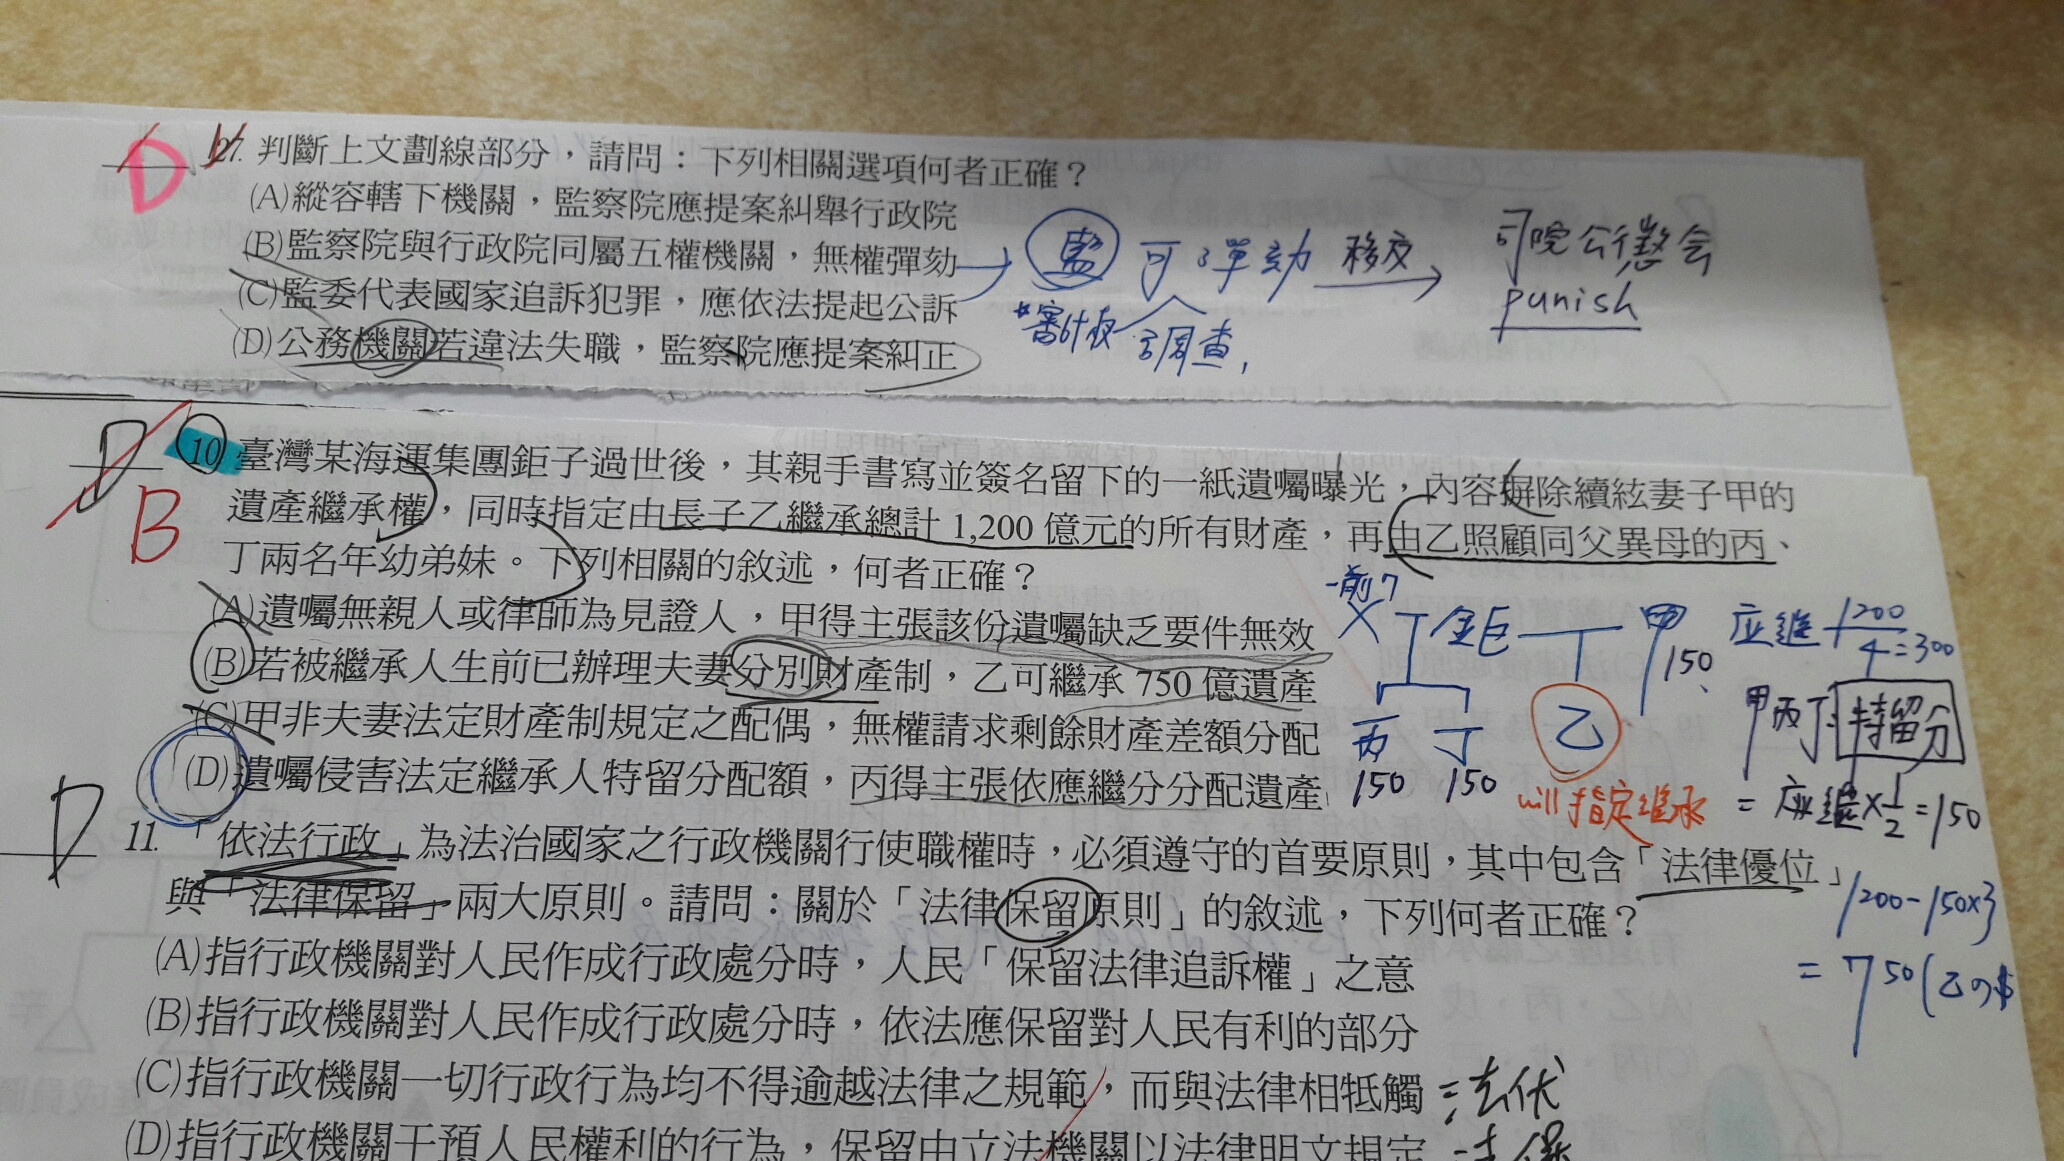 D 27. 判斷上文劃線部分，請問：下列相關選項何者正確？
(A)縱容轄下機關，監察院應提案糾舉行政院
(B)監察院與行政院同屬五權機關，無權彈劾
(C)監委代表國家追訴犯罪，應依法提起公訴
(D)公務機關若違法失職，監察院應提案糾正
監 可彈劾 移交 司院公懲會
punish
審計權 調查
D 10 臺灣某海運集團鉅子過世後，其親手書寫並簽名留下的一紙遺囑曝光，內容摒除續絃妻子甲的
B 遺產繼承權，同時指定由長子乙繼承總計 1,200 億元的所有財產，再由乙照顧同父異母的丙、
丁兩名年幼弟妹。下列相關的敘述，何者正確？
(A)遺囑無親人或律師為見證人，甲得主張該份遺囑缺乏要件無效
(B)若被繼承人生前已辦理夫妻分別財產制，乙可繼承 750 億遺產
(C)甲非夫妻法定財產制規定之配偶，無權請求剩餘財產差額分配
(D)遺囑侵害法定繼承人特留分配額，丙得主張依應繼分分配遺產
X 鉅 甲
150
丙 丁 乙
150 150
will 指定繼承
应繼 1200/4=300
甲丙丁：特留分
= 应繼×1/2=150
1200-150×3
=750(乙の$
D 11. 「依法行政」為法治國家之行政機關行使職權時，必須遵守的首要原則，其中包含「法律優位」
與「法律保留」兩大原則。請問：關於「法律保留原則」的敘述，下列何者正確？
(A)指行政機關對人民作成行政處分時，人民「保留法律追訴權」之意
(B)指行政機關對人民作成行政處分時，依法應保留對人民有利的部分
(C)指行政機關一切行政行為均不得逾越法律之規範，而與法律相牴觸
(D)指行政機關干預人民權利的行為，保留由立法機關以法律明文規定